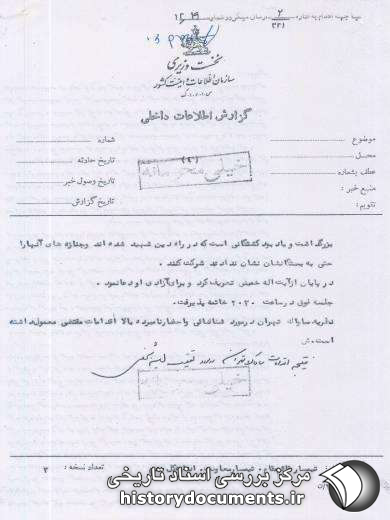 نخست وزیری
سازمان اطلاعات و امنیت کشور
س.ا.و.ا.ک
گزارش اطلاعات داخلی
موضوع
شماره
محل
تاریخ حادثه
عطف بشماره
تاریخ وصول خبر
منبع خبر:
تاریخ گزارش
تقویم:
خیلی محرمانه
بزرگداشت و یاد بود کشتگانی است که در راه دین شهید شده اند و جنازه های آنها را
حتی به بستگانشان نشان ندادند شرکت کنند.
در پایان از آیت اله خمینی تعریف کرد و برای آزادی او دعا نمود.
جلسه فوق در ساعت ۲۰۳۰ خاتمه پذیرفت.
نظریه ساواک تهران در مورد شناسائی و احضار نامبرده بالا اقدامات مقتضی معمول داشته
است.
نتیجه اقدامات ساواک تهران
تعداد نسخه: ۲
مرکز بررسی اسناد تاریخی
historydocuments.ir